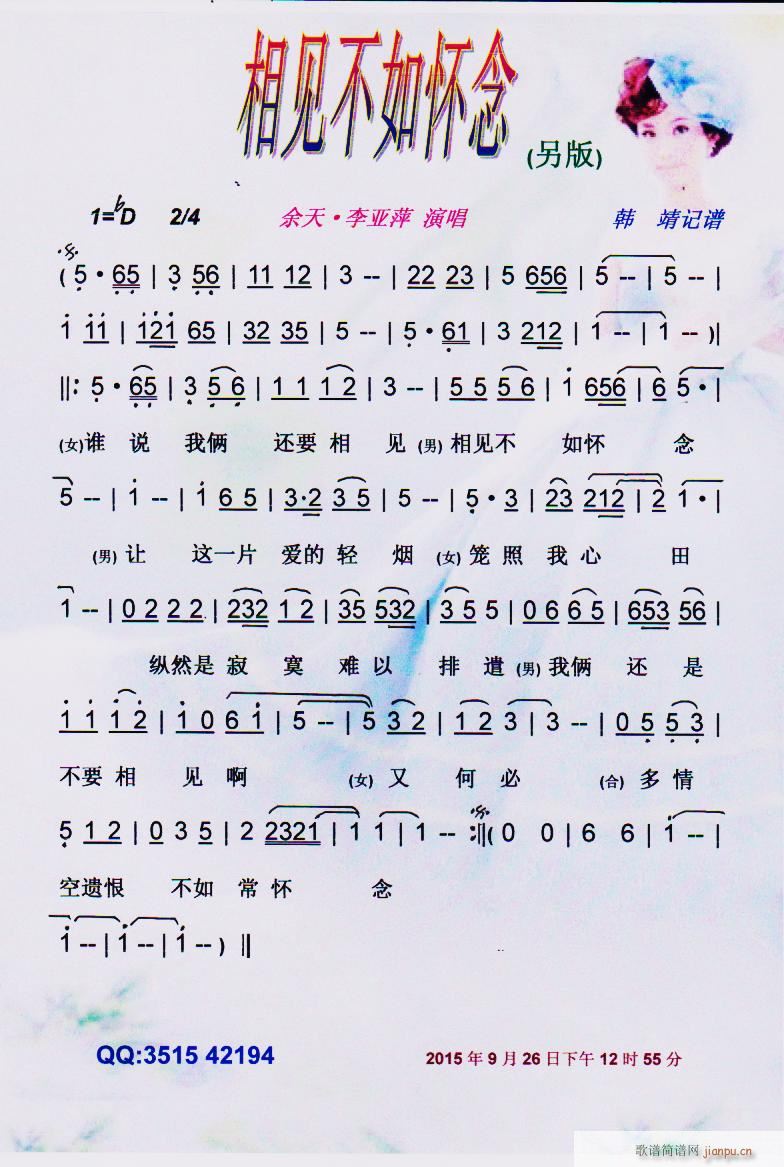 相见不如怀念
(另版)
1=bD 2/4 余天·李亚萍 演唱 韩 靖记谱
(5·65|3 56|11 12|3--|22 23|5 656|5--|5--|
1 11|121 65|32 35|5--|5·61|3 212|1--|1--)‖
‖:5·65|3 5 6|1 1 1 2|3--|5 5 5 6|1 656|6 5·|
(女)谁 说 我俩 还要 相 见 (男)相见不 如怀 念
5--|1--|1 6 5|3·2 3 5|5--|5·3|23 212|2 1·|
(男)让 这一片 爱的 轻 烟 (女)笼 照 我 心 田
1--|0 2 2 2|232 1 2|35 532|3 5 5|0 6 6 5|653 56|
纵然是 寂 寞 难 以 排 遣 (男)我俩 还 是
1 1 1 2|1 0 6 1|5--|5 3 2|1 2 3|3--|0 5 5 3|
不要 相 见 啊 (女) 又 何 必 (合) 多 情
5 1 2|0 3 5|2 2321|1 1|1--:‖(0 0|6 6|1--|
空遗恨 不如 常 怀 念
1--|1--|1--)‖
QQ:3515 42194
2015 年 9 月 26 日下午 12 时 55 分
歌谱简谱网 jianpu.cn